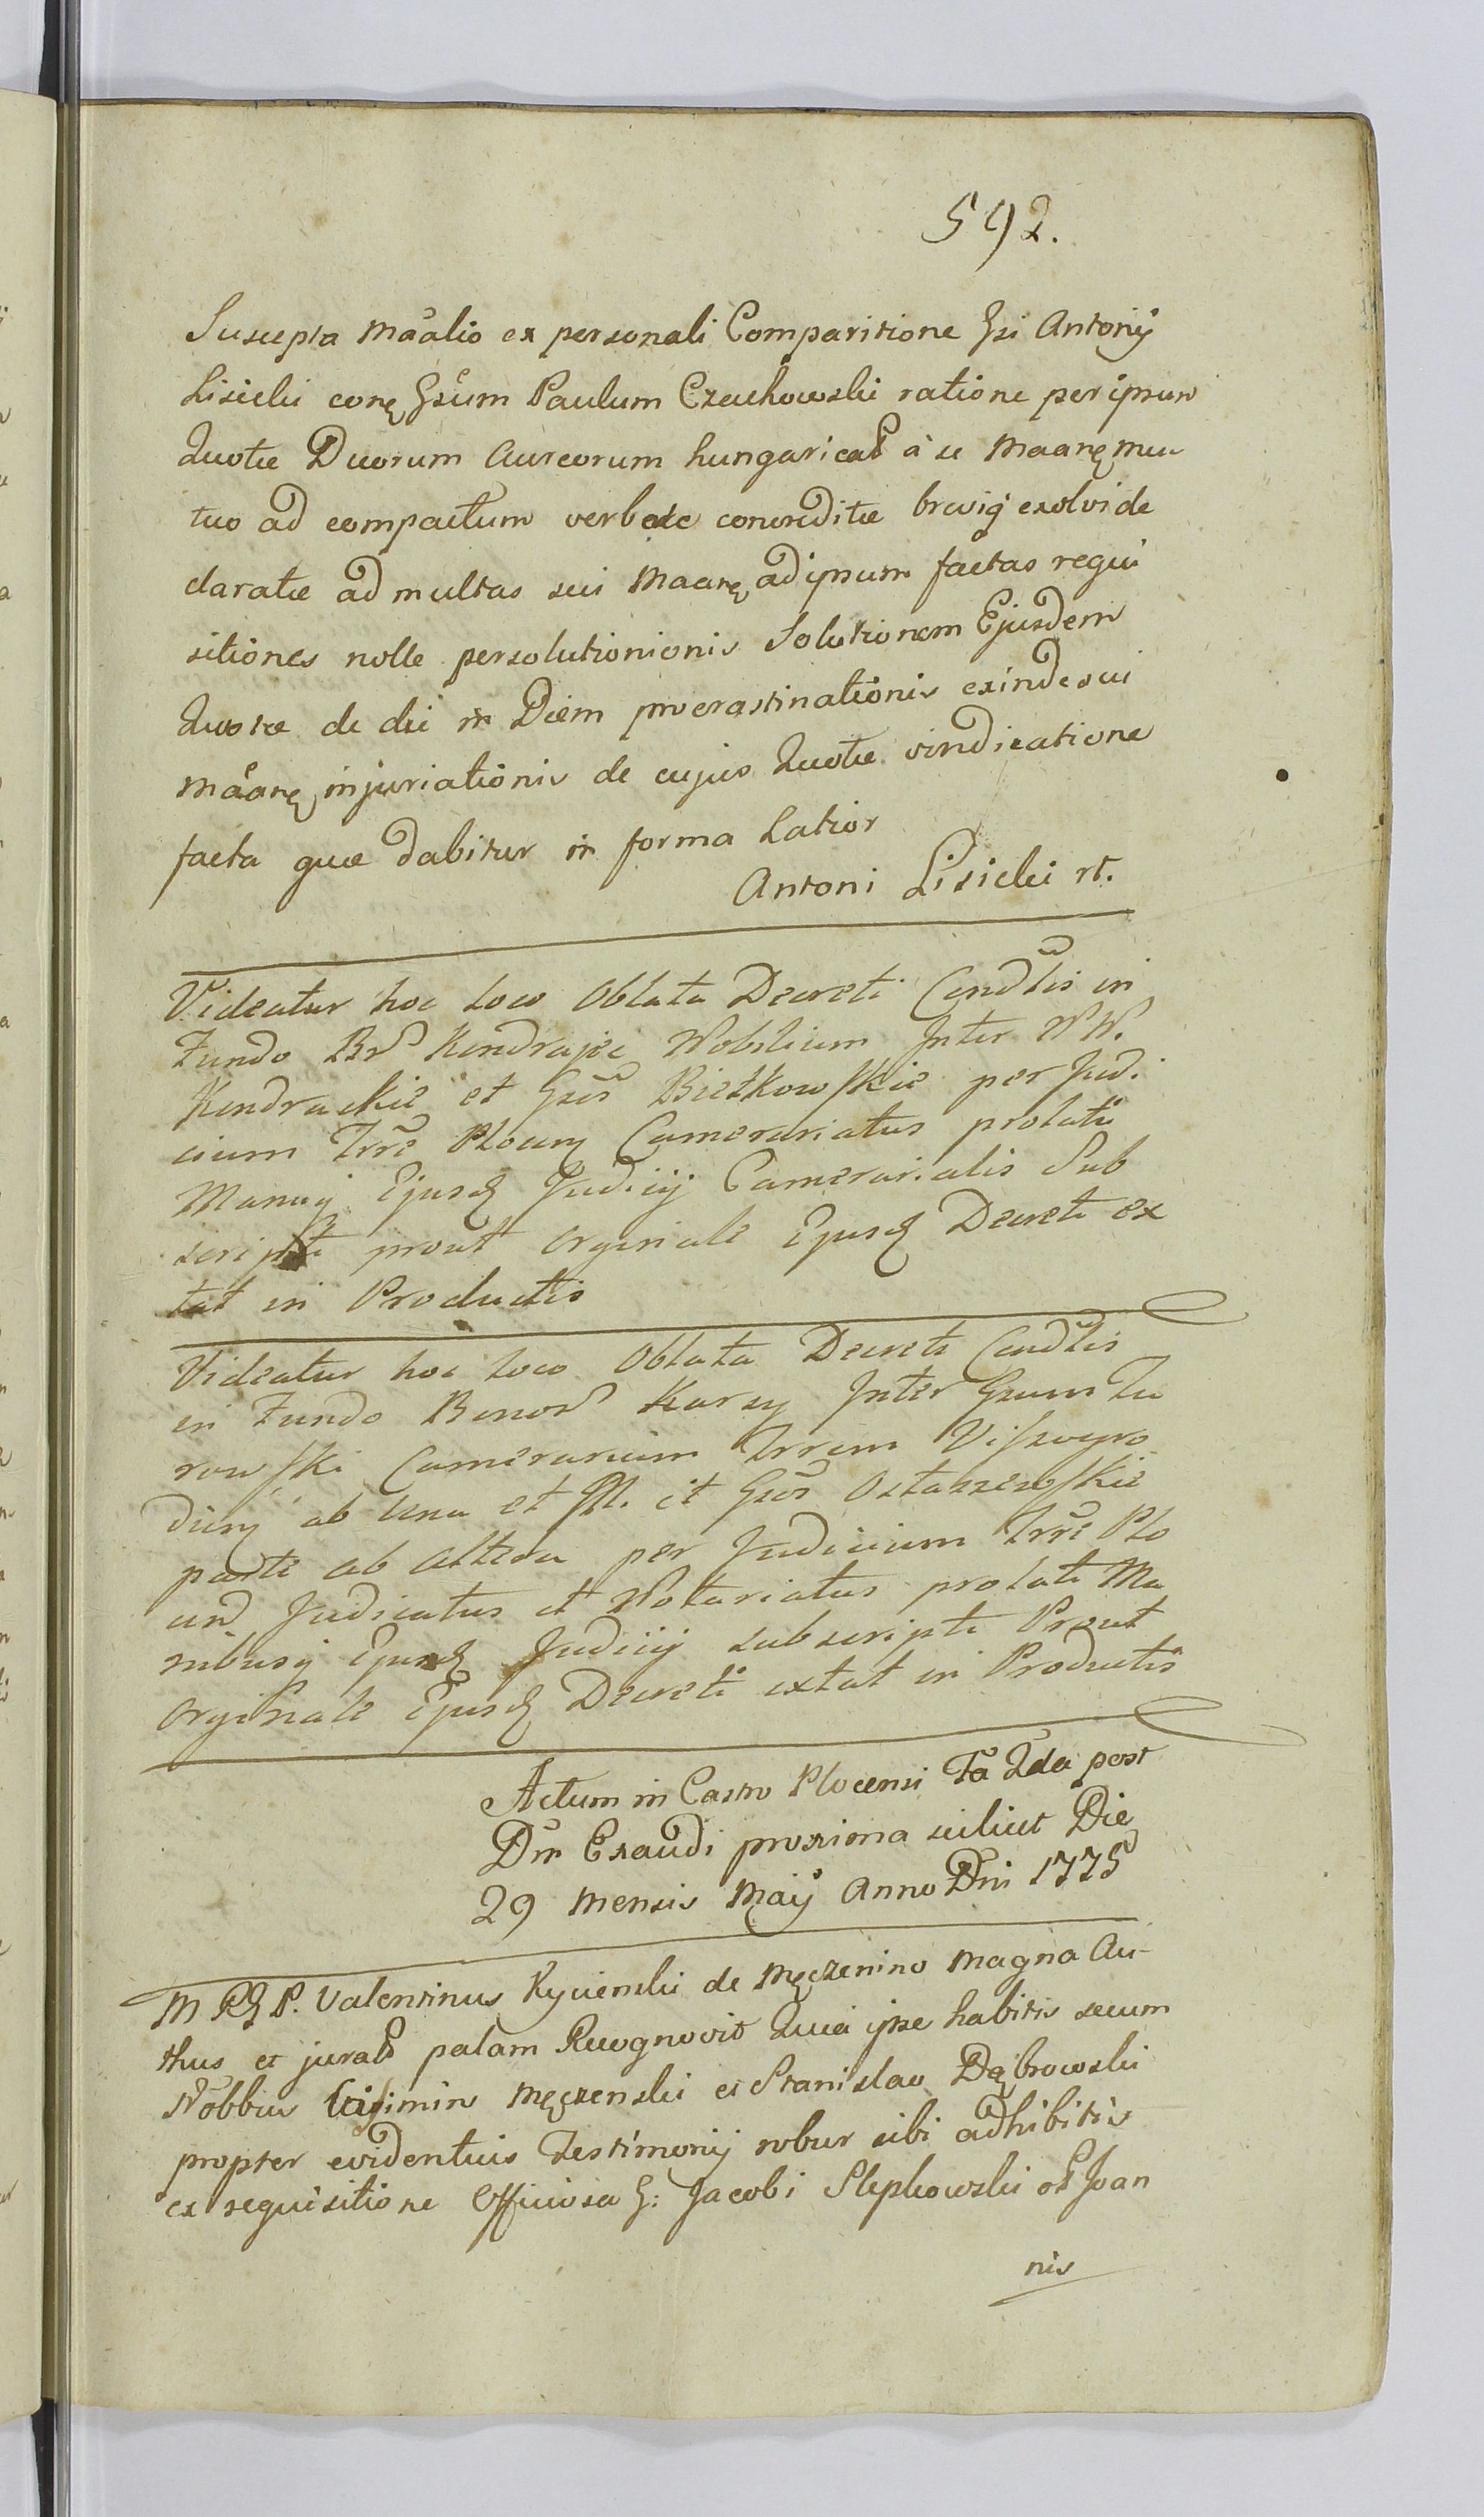 592.
Suscepta Maãlio ex personali Comparitione Gsi Antonij
Lisicki conę Gsum Paulum Czachowski ratione per ipsum
Quotæ Duorum Aureorum hungaricał à se Maanę mu-
tuo ad compactum verbale concreditæ brevig exolvi de
claratæ ad multas sui Maanę ad ipsum factas requi
sitiones nolle persolutionionis Solutionem Ejusdem
Quotæ de die in Diem procrastinationis exinde sui
Maanę injuriationis de cujus Quotæ vindicatione
facta quæ dabitur in forma Latior
Antoni Lisicki rt.
Videatur hoc loco Oblata Decreti Condlis in
Fundo Br Kendrajec Nobilium Inter NN.
Kendrackie et Gsos Bieżkowskie per Judi
cium Trre Plocen Camerariatus prolati
Manuq Ejusd Judicij Camerarialis Sub
scripti prout Orginale Ejusd Decreti ex
tat in Productis
Videatur hoc loco Oblata Decreti Condlis
in Fundo Bonor Karsy Inter Gsum Tu
rowski Camerarium Trrem Viszogro
dien ab una et M. et Gsos Ostaszewskie
parte ab altera per Judicium Trre Plo
cen Judicatus et Notariatus prolati Ma
nibusq Ejusd Judicij subscripti Prout
Orginale Ejusd Decreti extat in Productis
Actum in Castro Plocensi Fa 2da post
Dm Exaudi proxima scilicet Die
29 Mensis Maij Anno Dni 1775
M R G P. Valentinus Kycienski de Męczenino Magna Au-
thus et jurał palam Recognovit Quia ipse habitis secum
Nobbus Casimiro Męczenski et Stanislao Dąbrowski
propter evidentius Testimonij robur sibi adhibitis
ex requisitione Officiosa G: Jacobi Slepkowski ol Joan
nis